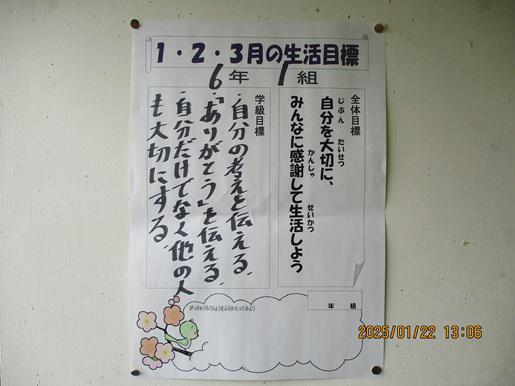 1・2・3月の生活目標
6年 1組
全体目標
自分を大切に、
みんなに感謝して生活しよう
じぶん たいせつ
かんしゃ せいかつ
学級目標
・自分の考えを伝える。
・「ありがとう」を伝える。
・自分だけでなく他の人
も大切にする。
年 組
2025/01/22 13:06